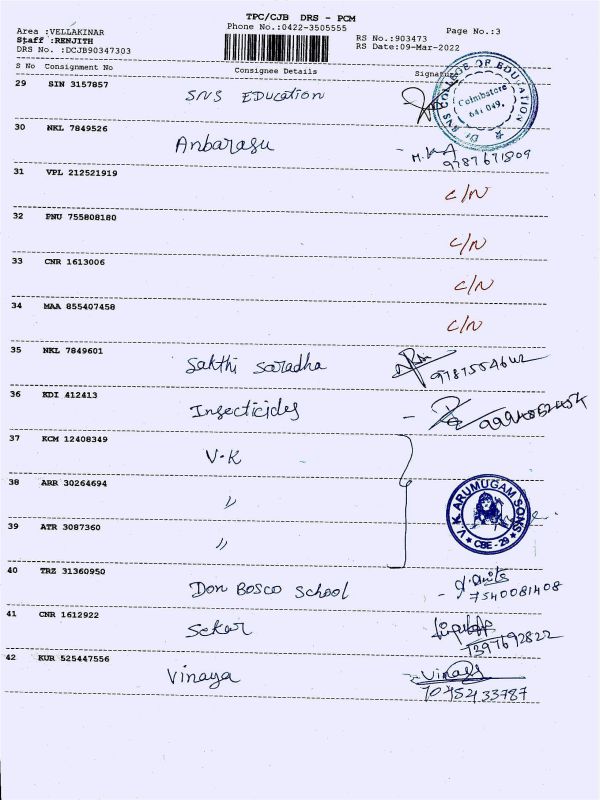 TPC/CJB DRS - PCM
Phone No.:0422-3505555
Page No.:3
Area :VELLAKINAR
Staff :RENJITH
RS No.:903473
DRS No. :DCJB90347303
RS Date:09-Mar-2022
S No Consignment No Consignee Details Signature
29 SIN 3157857 SNS Education
COLLEGE OF EDUCATION
Coimbatore
641 049.
30 NKL 7849526 Anbarasu - M.K.A
9787671809
31 VPL 212521919 C/N
32 PNU 755808180 C/N
33 CNR 1613006 C/N
34 MAA 855407458 C/N
35 NKL 7849601 Sakthi Saradha
36 KDI 412413 Insecticides -
37 KCM 12408349 V.K
38 ARR 30264694 "
V.K. ARUMUGAM SONS
CBE - 29
39 ATR 3087360 "
40 TRZ 31360950 Don Bosco School -
7540081408
41 CNR 1612922 Sekar
7397692822
42 KUR 525447556 Vinaya